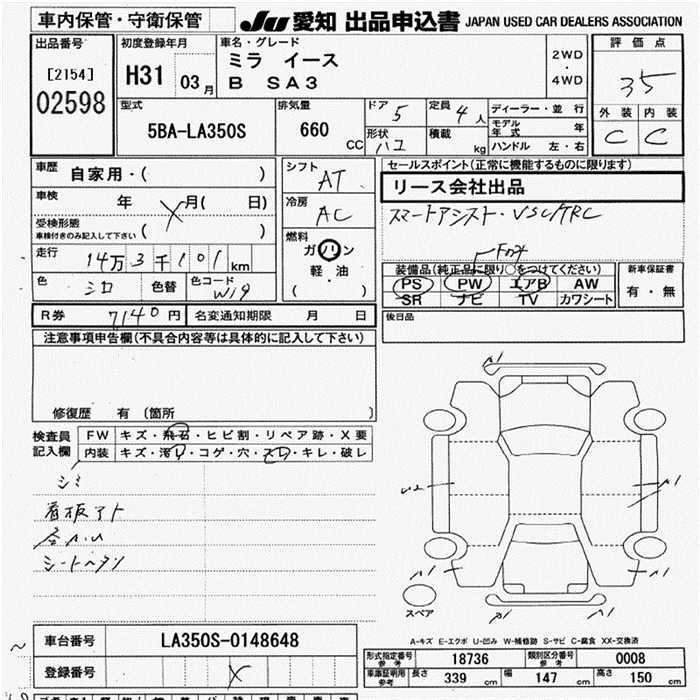 車内保管・守衛保管
JU 愛知 出品申込書 JAPAN USED CAR DEALERS ASSOCIATION
出品番号
[2154]
02598
初度登録年月
H31 03月
車名・グレード
ミラ イース
B SA3
2WD
・
4WD
評価点
35
外装 内装
C C
型式
5BA-LA350S
排気量
660
CC
ドア 5
形状 ハコ
定員 4人
積載 kg
ディーラー・並行
モデル年式 年
ハンドル 左・右
車歴
自家用・( )
車検
年 月( 日)
受検形態
車検付きのみ記入して下さい ( )
走行
14万3千101km
色
シロ
色替
色コード
W19
シフト
AT
冷房
AC
燃料
ガソリン
軽・油
( )
R券 7140円
名変通知期限 月 日
セールスポイント(正常に機能するものに限ります)
リース会社出品
スマートアシスト・VSC/TRC
装備品(純正品に限り○をつけてください)
PS PW エアB AW
SR ナビ TV カワシート
新車保証書
有・無
後日品
注意事項申告欄(不具合内容等は具体的に記入して下さい)
修復歴 有 (箇所 )
検査員記入欄
FW キズ・飛石・ヒビ割・リペア跡・X要
内装 キズ・汚レ・コゲ・穴・スレ・キレ・破レ
シミ
看板アト
シートヘタリ
A1
A1
A1
A1
A1
スペア
A-キズ E-エクボ U-凹み W-補修跡 S-サビ C-腐食 XX-交換済
車台番号 LA350S-0148648
登録番号
型式指定番号 参考 18736
類別区分番号 参考 0008
車庫証明用 参考 長さ 339 cm 幅 147 cm 高さ 150 cm